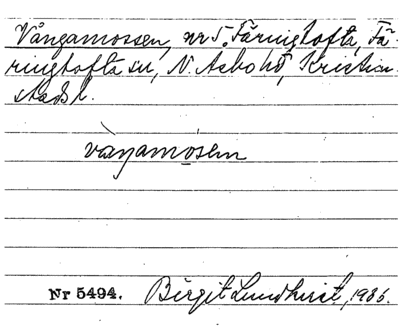 Vångamossen, nr 5. Färingtofta, Fä-
ringtofta sn, N. Åsbo hd, Kristian-
stads l.
vàŋamósen
Nr 5494. Birgit Lundkvist, 1936.